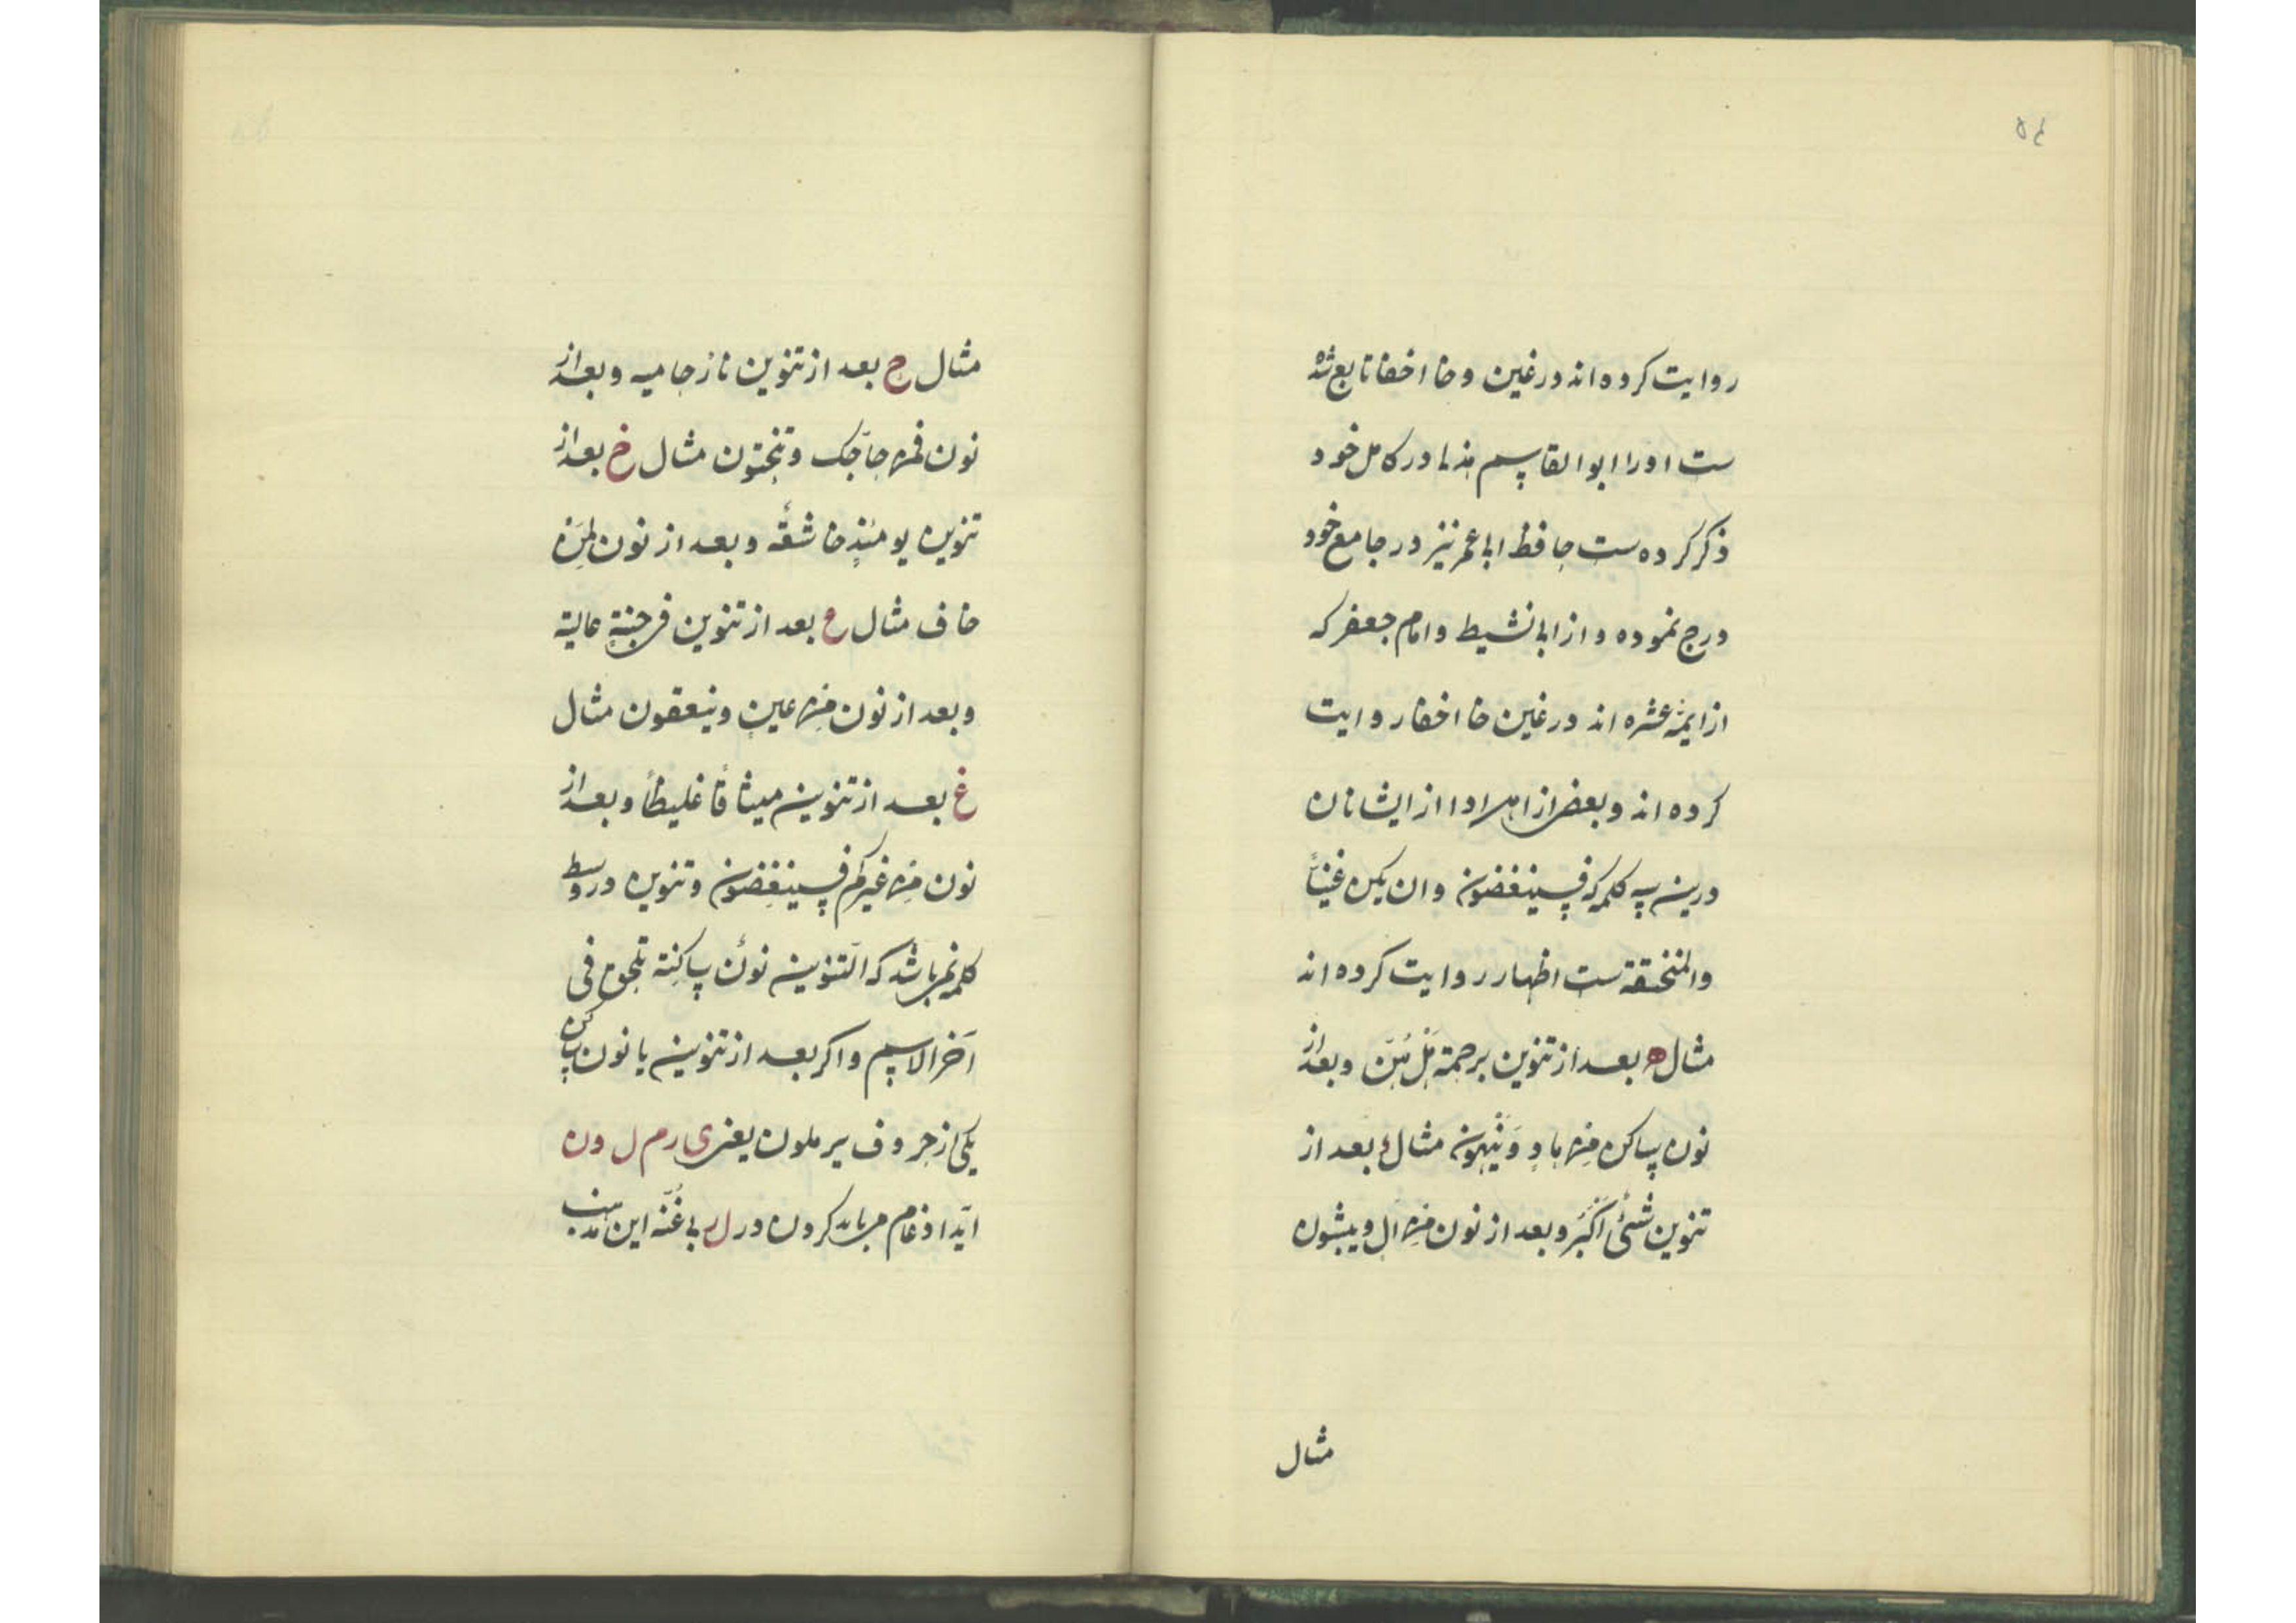 ۵۴
روایت کرده اند در غین و خا اخفا تابع شده
ست او را ابوالقاسم هذلی در کامل خود
ذکر کرده ست حافظ ابی عمر نیز در جامع خود
درج نموده و از ابی نشیط و امام جعفر که
از ایمه عشره اند در غین خا اخفا روایت
کرده اند و بعضی از اهل ادا از ایشانان
درین سه کلمه که فسینغضون و ان یکن غنیاً
والمنخنقة ست اظهار روایت کرده اند
مثال ه بعد از تنوین برحمة هل هن و بعد از
نون ساکن من هاد و ینهون مثال ء بعد از
تنوین شئ اکبر و بعد از نون من ال و ینئون
مثال
مثال ح بعد از تنوین نار حامیه و بعد از
نون فمن حاجک و تنحتون مثال خ بعد از
تنوین یومئذٍ خاشعة و بعد از نون لمن
خاف مثال ع بعد از تنوین فی جنةٍ عالیة
و بعد از نون من عین و ینعقون مثال
غ بعد از تنوین میثاقاً غلیظاً و بعد از
نون من غیرکم فسینغضون و تنوین در وسط
کلمه نمی باشد که التنوین نون ساکنة تلحق فی
آخر الاسم و اکر بعد از تنوین یا نون ساکن
یکی از حروف یرملون یعنی ی ر م ل و ن
اید ادغام می باید کردن در ل ر بی غنه این مذهب